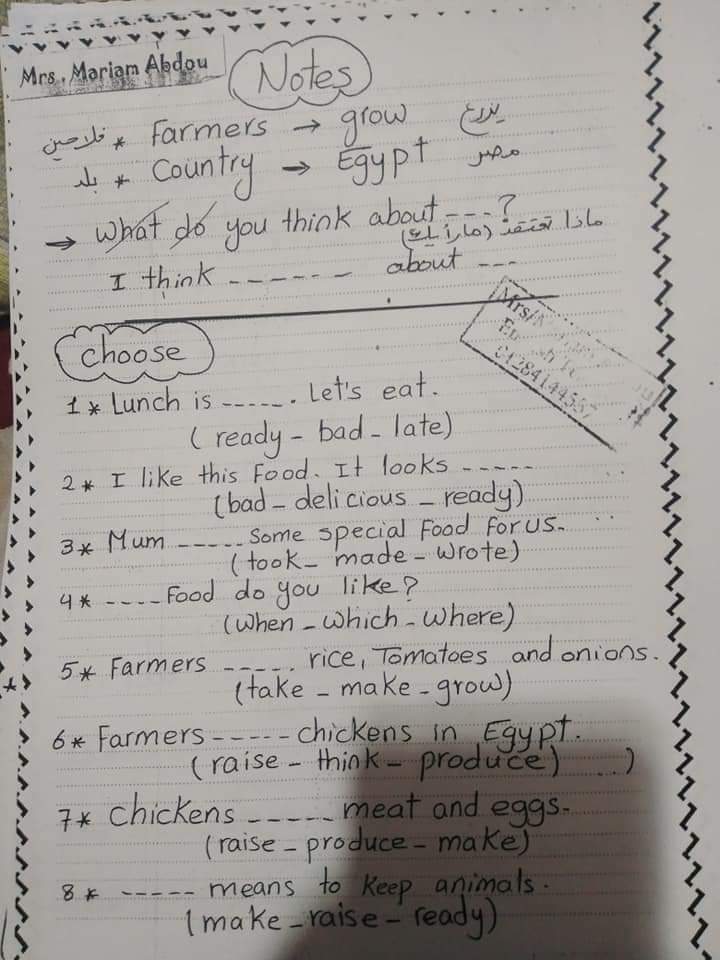 Mrs. Mariam Abdou
Notes
فلاحين * Farmers → grow يزرع
بلد * Country → Egypt مصر
→ What do you think about ---?
ماذا تعتقد (ما رأيك)
I think ------ about ---
Mrs/
choose
1* Lunch is -----. Let's eat.
(ready - bad - late)
2* I like this Food. It looks -----
(bad - delicious - ready)
3* Mum ----- Some special Food For us.
(took - made - wrote)
4* ---- Food do you like?
(when - which - where)
5* Farmers -----. rice, Tomatoes and onions.
(take - make - grow)
6* Farmers ----- chickens in Egypt.
(raise - think - produce) ...)
7* chickens ----- meat and eggs.
(raise - produce - make)
8* ----- means to keep animals.
(make - raise - ready)